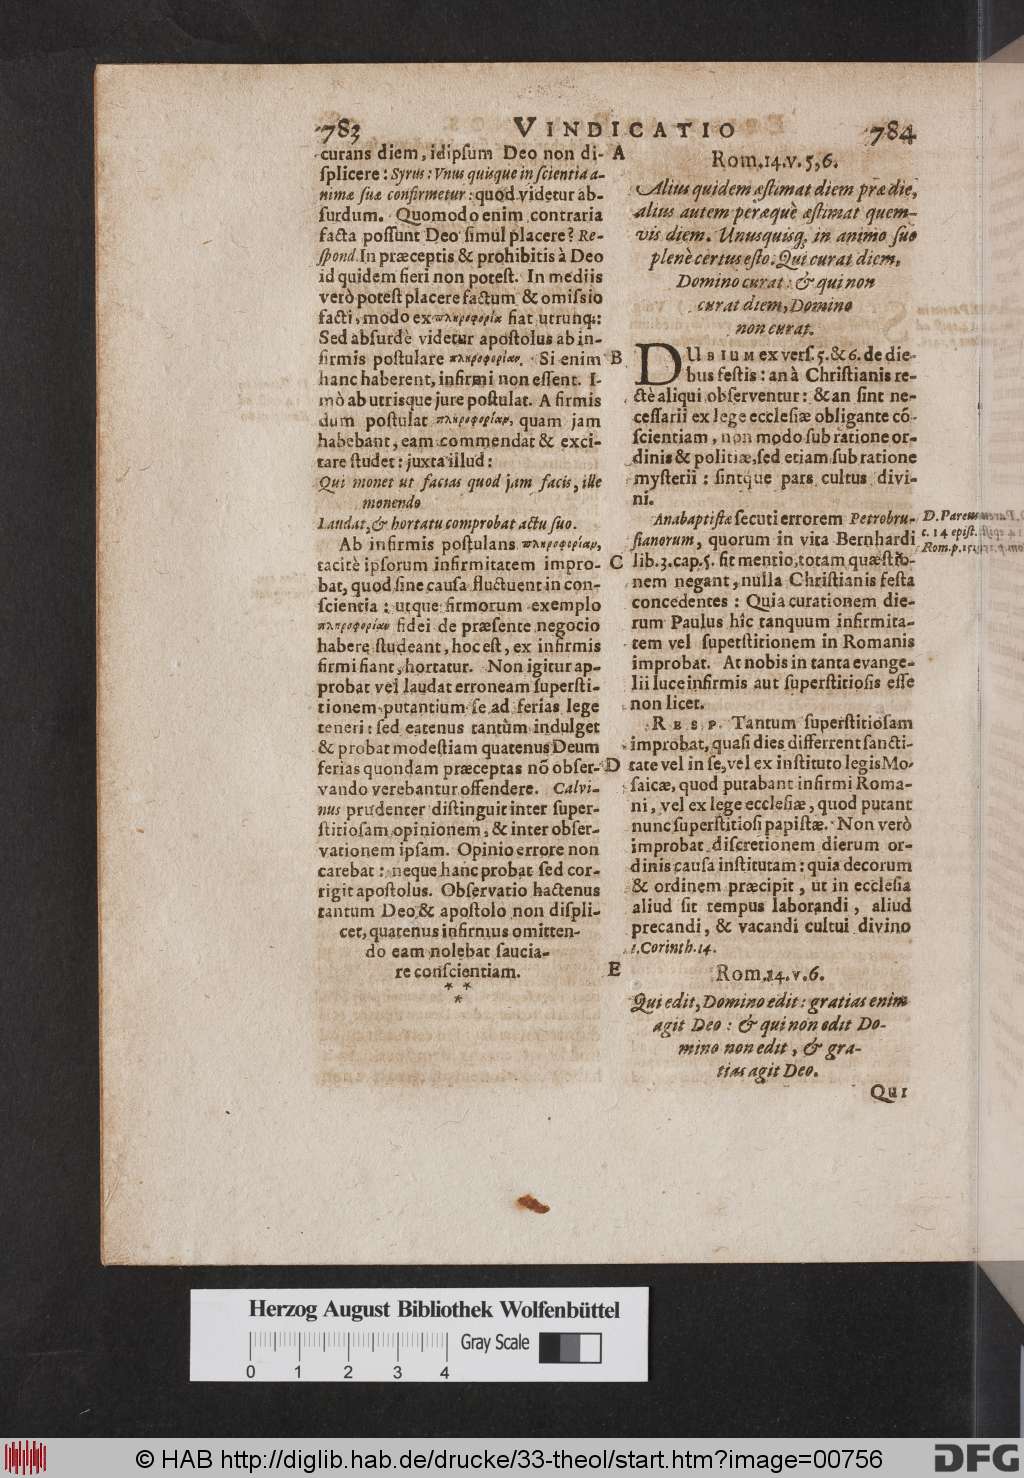 783 VINDICATIO 784
curans diem, idipſum Deo non di-
ſplicere: Syrus: Vnus quiſque in ſcientia a-
nimæ ſuæ confirmetur: quod videtur ab-
ſurdum. Quomodo enim contraria
facta poſſunt Deo ſimul placere? Re-
ſpond. In præceptis & prohibitis à Deo
id quidem fieri non poteſt. In mediis
verò poteſt placere factum & omiſsio
facti, modo ex πληροφορία fiat utrunq;:
Sed abſurdè videtur apoſtolus ab in-
firmis poſtulare πληροφορίαν. Si enim
hanc haberent, infirmi non eſſent. I-
mò ab utrisque jure poſtulat. A firmis
dum poſtulat πληροφορίαν, quam jam
habebant, eam commendat & exci-
tare ſtudet: juxta illud:
Qui monet ut facias quod jam facis, ille
monendo
Laudat, & hortatu comprobat actu ſuo.
Ab infirmis poſtulans πληροφορίαν,
tacitè ipſorum infirmitatem impro-
bat, quod ſine cauſa fluctuent in con-
ſcientia: utque firmorum exemplo
πληροφορίαν fidei de præſente negocio
habere ſtudeant, hoc eſt, ex infirmis
firmi fiant, hortatur. Non igitur ap-
probat vel laudat erroneam ſuperſti-
tionem putantium ſe ad ferias lege
teneri: ſed eatenus tantùm indulget
& probat modeſtiam quatenus Deum
ferias quondam præceptas nō obſer-
vando verebantur offendere. Calvi-
nus prudenter diſtinguit inter ſuper-
ſtitioſam opinionem, & inter obſer-
vationem ipſam. Opinio errore non
carebat: neque hanc probat ſed cor-
rigit apoſtolus. Obſervatio hactenus
tantum Deo & apoſtolo non diſpli-
cet, quatenus infirmus omitten-
do eam nolebat ſaucia-
re conſcientiam.
* *
*
A
B
C
D
E
Rom. 14. v. 5, 6.
Alius quidem æſtimat diem præ die,
alius autem peræquè æſtimat quem-
vis diem. Unusquisq, in animo ſuo
plenè certus eſto. Qui curat diem,
Domino curat: & qui non
curat diem, Domino
non curat.
DUBIUM ex verſ. 5. & 6. de die-
bus feſtis: an à Chriſtianis re-
ctè aliqui obſerventur: & an ſint ne-
ceſſarii ex lege eccleſiæ obligante cō-
ſcientiam, non modo ſub ratione or-
dinis & politiæ, ſed etiam ſub ratione
myſterii: ſintque pars cultus divi-
ni.
Anabaptiſtæ ſecuti errorem Petrobru-
ſianorum, quorum in vita Bernhardi
lib. 3. cap. 5. fit mentio, totam quæſtio-
nem negant, nulla Chriſtianis feſta
concedentes: Quia curationem die-
rum Paulus hîc tanquum infirmita-
tem vel ſuperſtitionem in Romanis
improbat. At nobis in tanta evange-
lii luce infirmis aut ſuperſtitioſis eſſe
non licet.
RESP. Tantum ſuperſtitioſam
improbat, quaſi dies differrent ſancti-
tate vel in ſe, vel ex inſtituto legis Mo-
ſaicæ, quod putabant infirmi Roma-
ni, vel ex lege eccleſiæ, quod putant
nunc ſuperſtitioſi papiſtæ. Non verò
improbat diſcretionem dierum or-
dinis cauſa inſtitutam: quia decorum
& ordinem præcipit, ut in eccleſia
aliud ſit tempus laborandi, aliud
precandi, & vacandi cultui divino
1. Corinth. 14.
Rom. 14. v. 6.
Qui edit, Domino edit: gratias enim
agit Deo: & qui non edit Do-
mino non edit, & gra-
tias agit Deo.
Qui
D. Pareus in
c. 14 epiſt.
Rom. p. 151
Herzog August Bibliothek Wolfenbüttel
Gray Scale
0 1 2 3 4
© HAB http://diglib.hab.de/drucke/33-theol/start.htm?image=00756
DFG